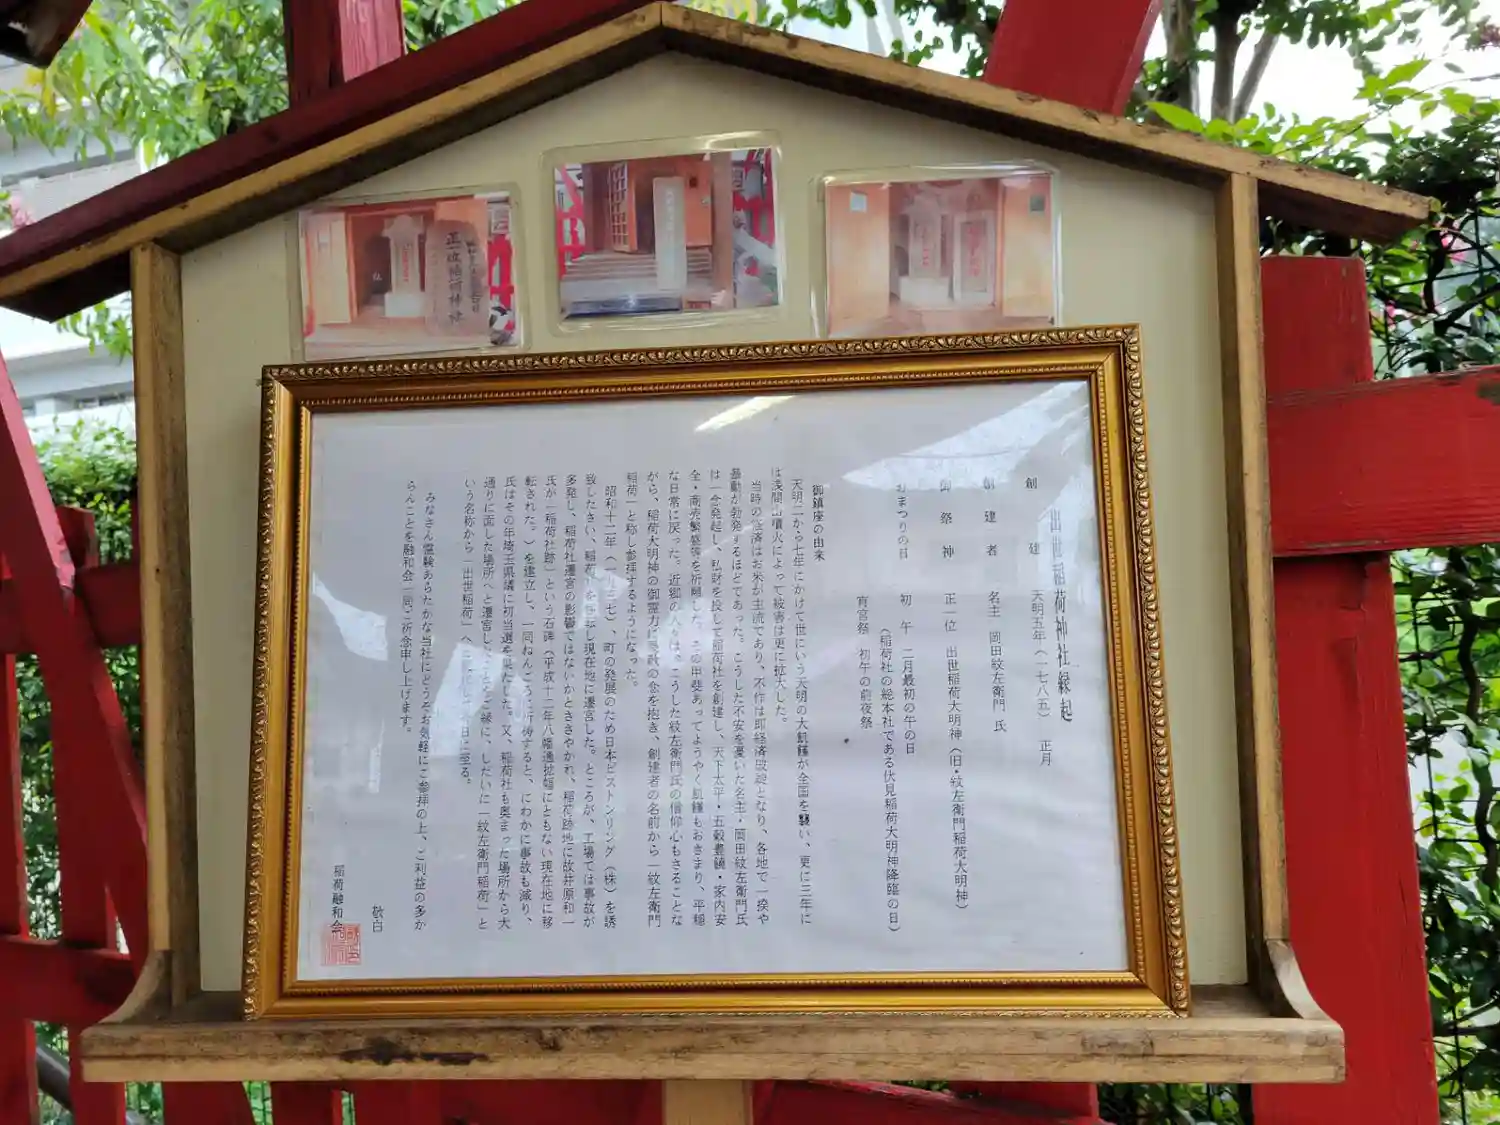 正一位稲荷神社
出世稲荷神社縁起
創建 天明五年(一七八五) 正月
創建者 名主 岡田紋左衛門 氏
御祭神 正一位 出世稲荷大明神(旧・紋左衛門稲荷大明神)
おまつりの日 初午 二月最初の午の日
(稲荷社の総本社である伏見稲荷大明神降臨の日)
宵宮祭 初午の前夜祭
御鎮座の由来
天明二から七年にかけて世にいう天明の大飢饉が全国を襲い、更に三年に
は浅間山噴火によって被害は更に拡大した。
当時の経済はお米が主流であり、不作は即経済破綻となり、各地で一揆や
暴動が勃発するほどであった。こうした不安を憂いた名主・岡田紋左衛門氏
は一念発起し、私財を投して稲荷社を創建し、天下太平・五穀豊饒・家内安
全・商売繁盛等を祈願した。その甲斐あってようやく飢饉もおさまり、平穏
な日常に戻った。近郷の人々は、こうした紋左衛門氏の信仰心もさることな
がら、稲荷大明神の御霊力に畏敬の念を抱き、創建者の名前から「紋左衛門
稲荷」と称し参拝するようになった。
昭和十二年(一九三七)、町の発展のため日本ピストンリング(株)を誘
致したさい、稲荷社を移転し現在地に遷宮した。ところが、工場では事故が
多発し、稲荷社遷宮の影響ではないかとささやかれ、稲荷跡地に故井原和一
氏が「稲荷社跡」という石碑(平成十二年八幡通拡幅にともない現在地に移
転された。)を建立し、一同ねんごろに祈祷すると、にわかに事故も減り、
氏はその年埼玉県議に初当選を果たした。又、稲荷社も奥まった場所から大
通りに面した場所へと遷宮したことをご縁に、しだいに「紋左衛門稲荷」と
いう名称から「出世稲荷」へ 今日に至る。
みなさん霊験あらたかな当社にどうぞお気軽にご参拝の上、ご利益の多か
らんことを融和会一同ご祈念申し上げます。
敬白
稲荷融和会